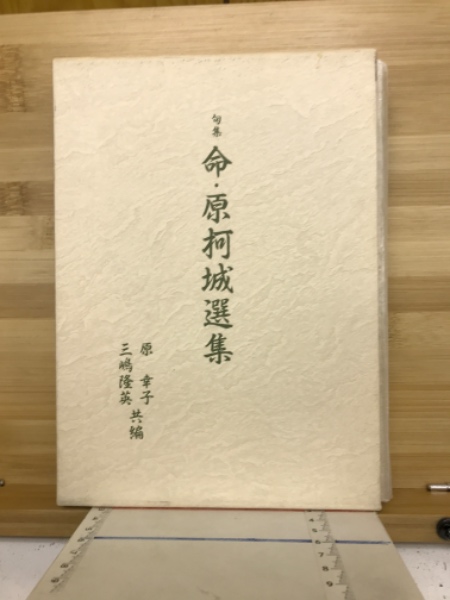 句集
命・原柯城選集
原幸子
三嶋隆英 共編